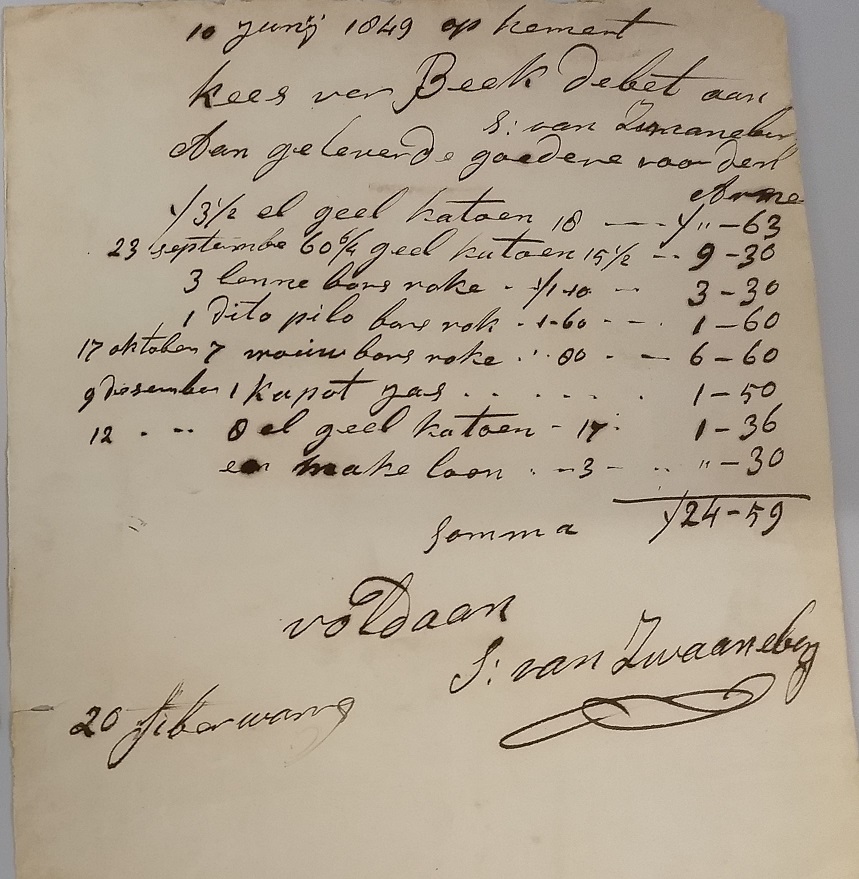 10 Junij 1849 op hement
Kees ver Beek debet aan
S: van Zwanenber
Aan geleverde goedere voor den
Arme
ƒ 3 1/2 el geel katoen 18 — ƒ " - 63
23 septembe 60 6/4 geel katoen 15 1/2 -- 9 - 30
3 lenne bors roke - ƒ 1-10 -- 3 - 30
1 dito pilo bors rok - 1-60 - - . 1 - 60
17 oktober 7 vrouw bors roke . ' . 80 . - - 6 - 60
9 desember 1 kapot jas . . . . . . . 1 - 50
12 . -- 8 el geel katoen - 17 . 1 - 36
en make loon . - 3 - . . " - 30
somma ƒ 24 - 59
voldaan
S: van Zwaanebeg
20